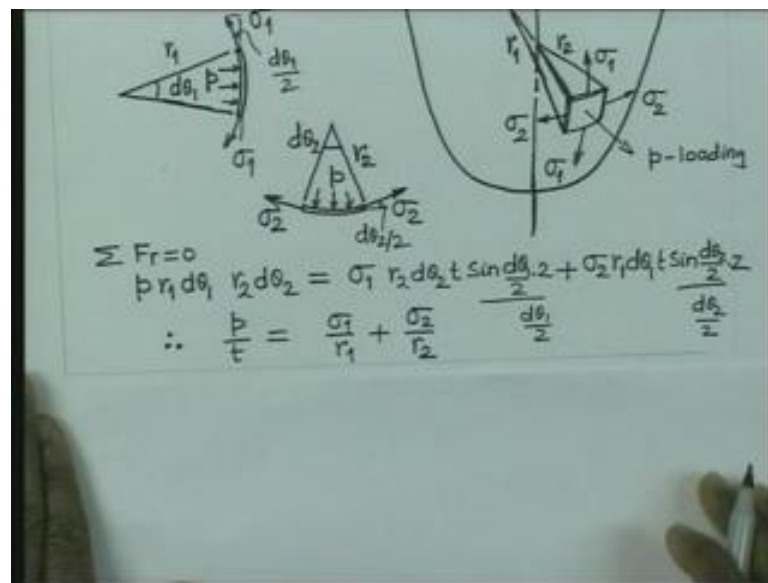 σ1
r1
dθ1
p
dθ1/2
σ1
dθ2
r2
p
σ2
σ2
dθ2/2
r1
r2
σ1
σ2
σ2
σ1
p-loading
Σ Fr=0
p r1 dθ1 r2 dθ2 = σ1 r2 dθ2 t sin dθ1/2 .2 + σ2 r1 dθ1 t sin dθ2/2 .2
dθ1/2
dθ2/2
∴ p/t = σ1/r1 + σ2/r2